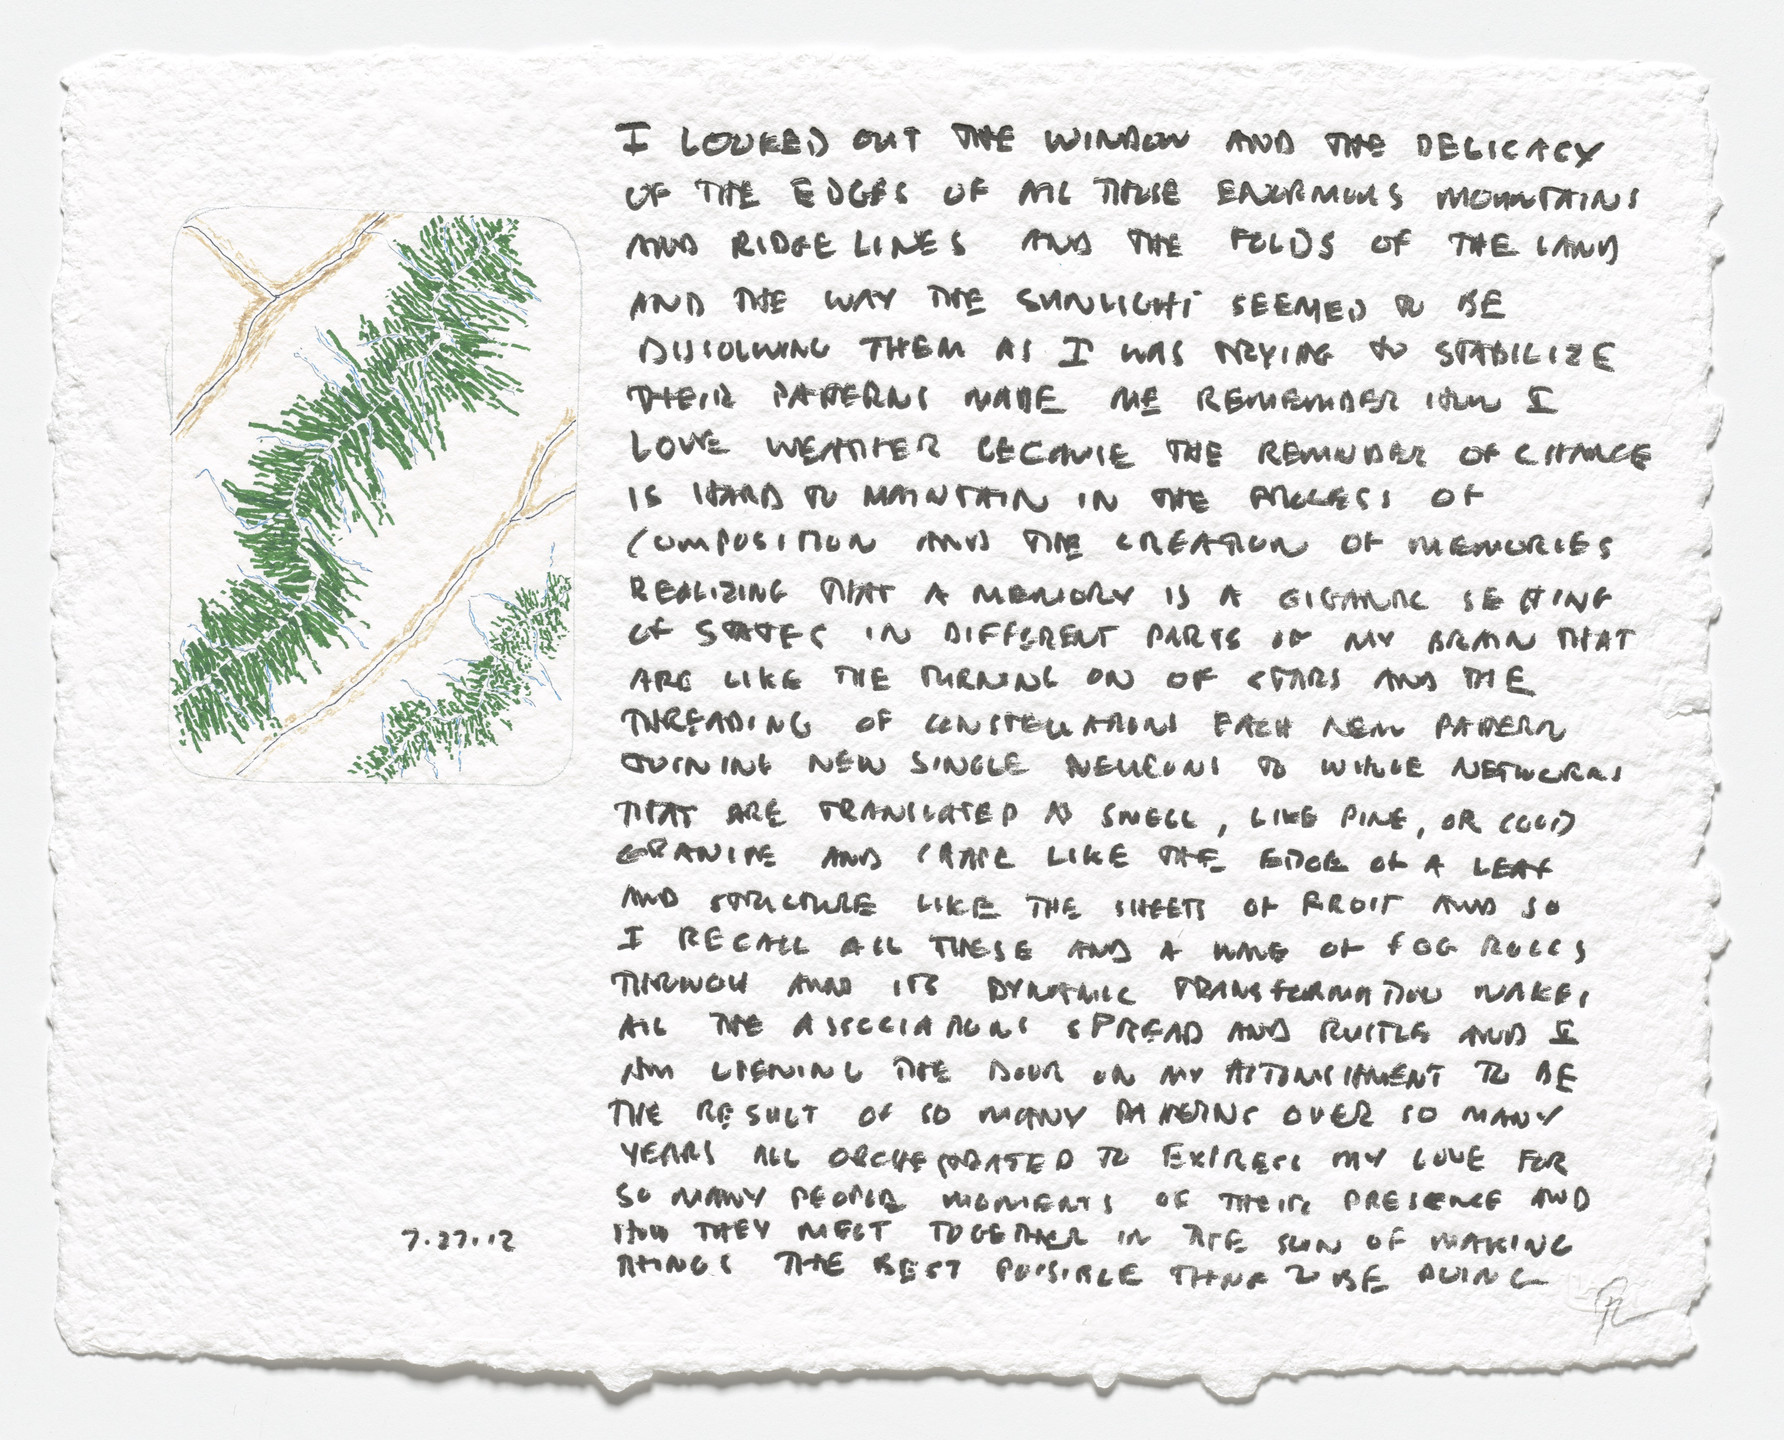 I LOOKED OUT THE WINDOW AND THE DELICACY
OF THE EDGES OF ALL THESE ENORMOUS MOUNTAINS
AND RIDGE LINES AND THE FOLDS OF THE LAND
AND THE WAY THE SUNLIGHT SEEMED TO BE
DISSOLVING THEM AS I WAS TRYING TO STABILIZE
THEIR PATTERNS MADE ME REMEMBER HOW I
LOVE WEATHER BECAUSE THE REMINDER OF CHANGE
IS HARD TO MAINTAIN IN THE PROCESS OF
COMPOSITION AND THE CREATION OF MEMORIES
REALIZING THAT A MEMORY IS A GIGANTIC SETTING
OF STATES IN DIFFERENT PARTS OF MY BRAIN THAT
ARE LIKE THE TURNING ON OF STARS AND THE
THREADING OF CONSTELLATIONS EACH NEW PATTERN
JOINING NEW SINGLE NEURONS TO WHOLE NETWORKS
THAT ARE TRANSLATED AS SMELL, LIKE PINE, OR COLD
GRANITE AND SHAPE LIKE THE EDGE OF A LEAF
AND STRUCTURE LIKE THE SHEETS OF FRUIT AND SO
I RECALL ALL THESE AND A WAVE OF FOG ROLLS
THROUGH AND ITS DYNAMIC TRANSFORMATION MAKES
ALL THE ASSOCIATIONS SPREAD AND RUSTLE AND I
AM OPENING THE DOOR ON MY ASTONISHMENT TO BE
THE RESULT OF SO MANY PATTERNS OVER SO MANY
YEARS ALL ORCHESTRATED TO EXPRESS MY LOVE FOR
SO MANY PEOPLE MOMENTS OF THEIR PRESENCE AND
HOW THEY MEET TOGETHER IN THE SUN OF MAKING
THINGS THE BEST POSSIBLE THING TO BE DOING
7.27.12